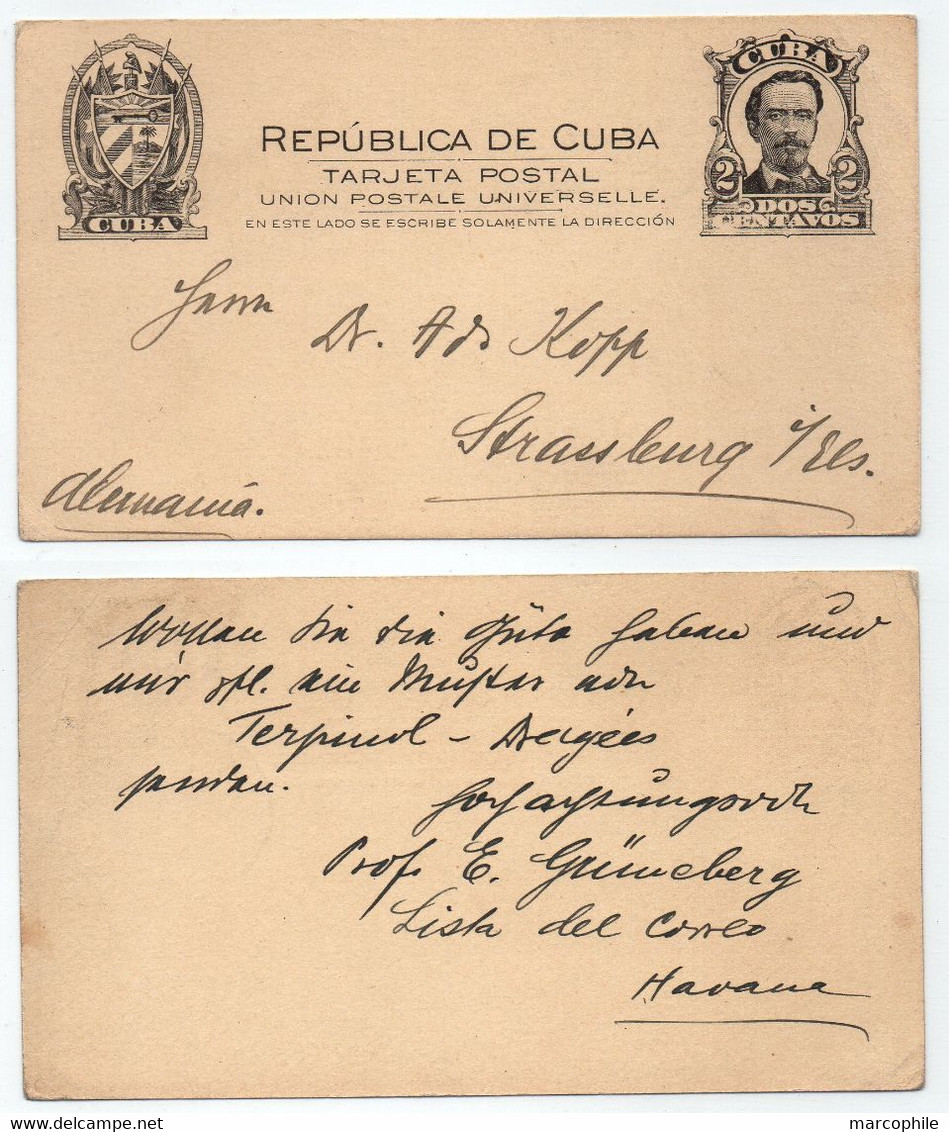 CUBA
REPÚBLICA DE CUBA
TARJETA POSTAL
UNION POSTALE UNIVERSELLE.
EN ESTE LADO SE ESCRIBE SOLAMENTE LA DIRECCIÓN
CUBA
2 2
DOS
CENTAVOS
Herrn
Dr. Kopp
Strassburg i/Els.
Alemania.
Wollen Sie die Güte haben und
mir gfl. ein Muster
Terpinol - Dragées
senden.
Hochachtungsvoll
Prof. E. Grüneberg
Lista del Correo
Havana
marcophile